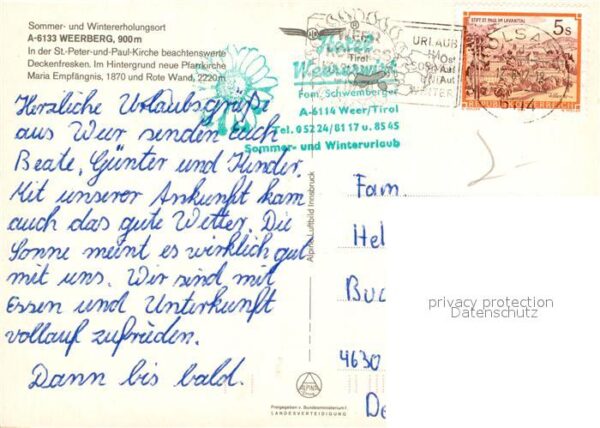 Sommer- und Wintererholungsort
A-6133 WEERBERG, 900m
In der St.-Peter-und-Paul-Kirche beachtenswerte
Deckenfresken. Im Hintergrund neue Pfarrkirche
Maria Empfängnis, 1870 und Rote Wand, 2220m
Herzliche Urlaubsgrüße
aus Weer senden Euch
Beate, Günter und Kinder.
Mit unserer Ankunft kam
auch das gute Wetter. Die
Sonne meint es wirklich gut
mit uns. Wir sind mit
Essen und Unterkunft
vollauf zufrieden.
Dann bis bald.
Hotel
Tirol
Weererwirt
Fam. Schwemberger
A-6114 Weer/Tirol
Tel. 05224/8117 u. 8545
Sommer- und Winterurlaub
URLAUB
STIFT ST. PAUL IM LAVANTTAL
5s
REPUBLIK ÖSTERREICH
6114
2-
Alpine Luftbild Innsbruck
Fam.
Hel
Buc
4630
De
privacy protection
Datenschutz
ALPINE
Freigegeben v. Bundesministerium f.
LANDESVERTEIDIGUNG